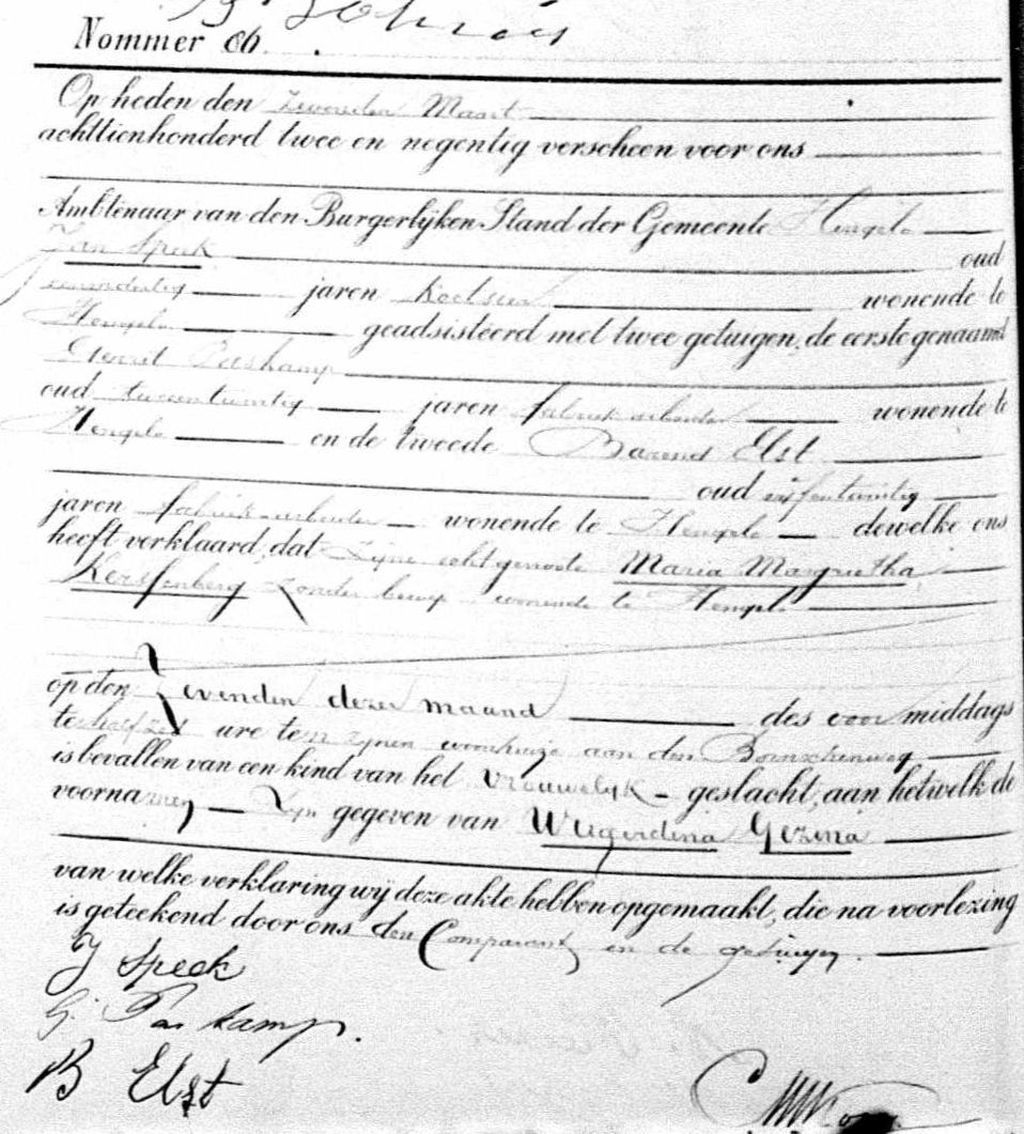 Nommer 86.
Op heden den zevenden Maart
achttienhonderd twee en negentig verscheen voor ons
Ambtenaar van den Burgerlijken Stand der Gemeente Hengelo
Jan Speck oud
jaren wonende te
Hengelo geadsisteerd met twee getuigen, de eerste genaamd
Gerrit
oud jaren fabriekarbeider wonende te
Hengelo en de tweede Barend Elst
oud vijfentwintig
jaren fabriek-arbeider wonende te Hengelo dewelke ons
heeft verklaard, dat zijne echtgenoote Maria Margrietha
zonder beroep wonende te Hengelo
op den Zevenden dezer maand des voormiddags
te half zes ure ten zijnen woonhuize aan den Bornschenweg
is bevallen van een kind van het vrouwelijk geslacht, aan hetwelk de
voornamen Zijn gegeven van Wegerdina Gezina
van welke verklaring wij deze akte hebben opgemaakt, die na voorlezing
is geteekend door ons den Comparant en de getuigen.
J Speck
G.
B Elst